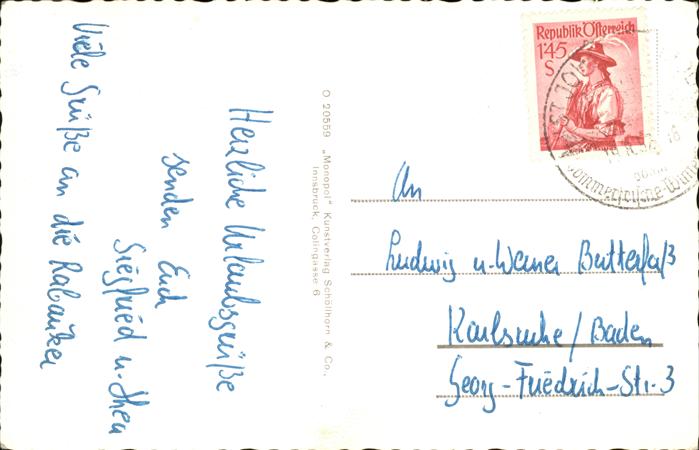 Herzliche Urlaubsgrüße
senden Euch
Siegfried u. Thea
Viele Grüße an die Rabauken
O 20559 „Monopol" Kunstverlag Schöllhorn & Co.,
Innsbruck, Colingasse 6
Republik Österreich
1'45
S
ST. JO
Sommerfrische - Winter
An
Ludwig u. Werner Butterfaß
Karlsruhe/Baden
Georg-Friedrich-Str. 3